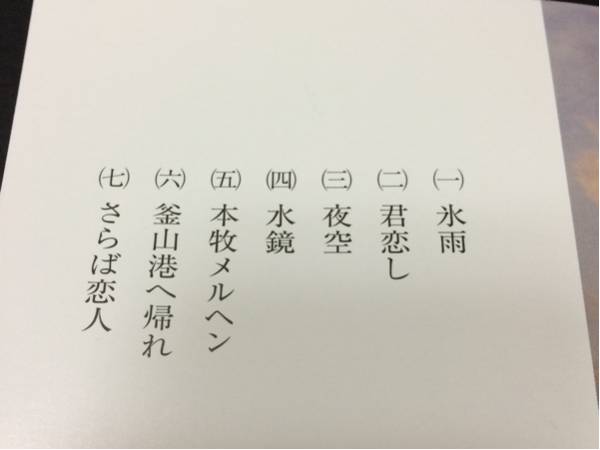 ㈠ 氷雨
㈡ 君恋し
㈢ 夜空
㈣ 水鏡
㈤ 本牧メルヘン
㈥ 釜山港へ帰れ
㈦ さらば恋人